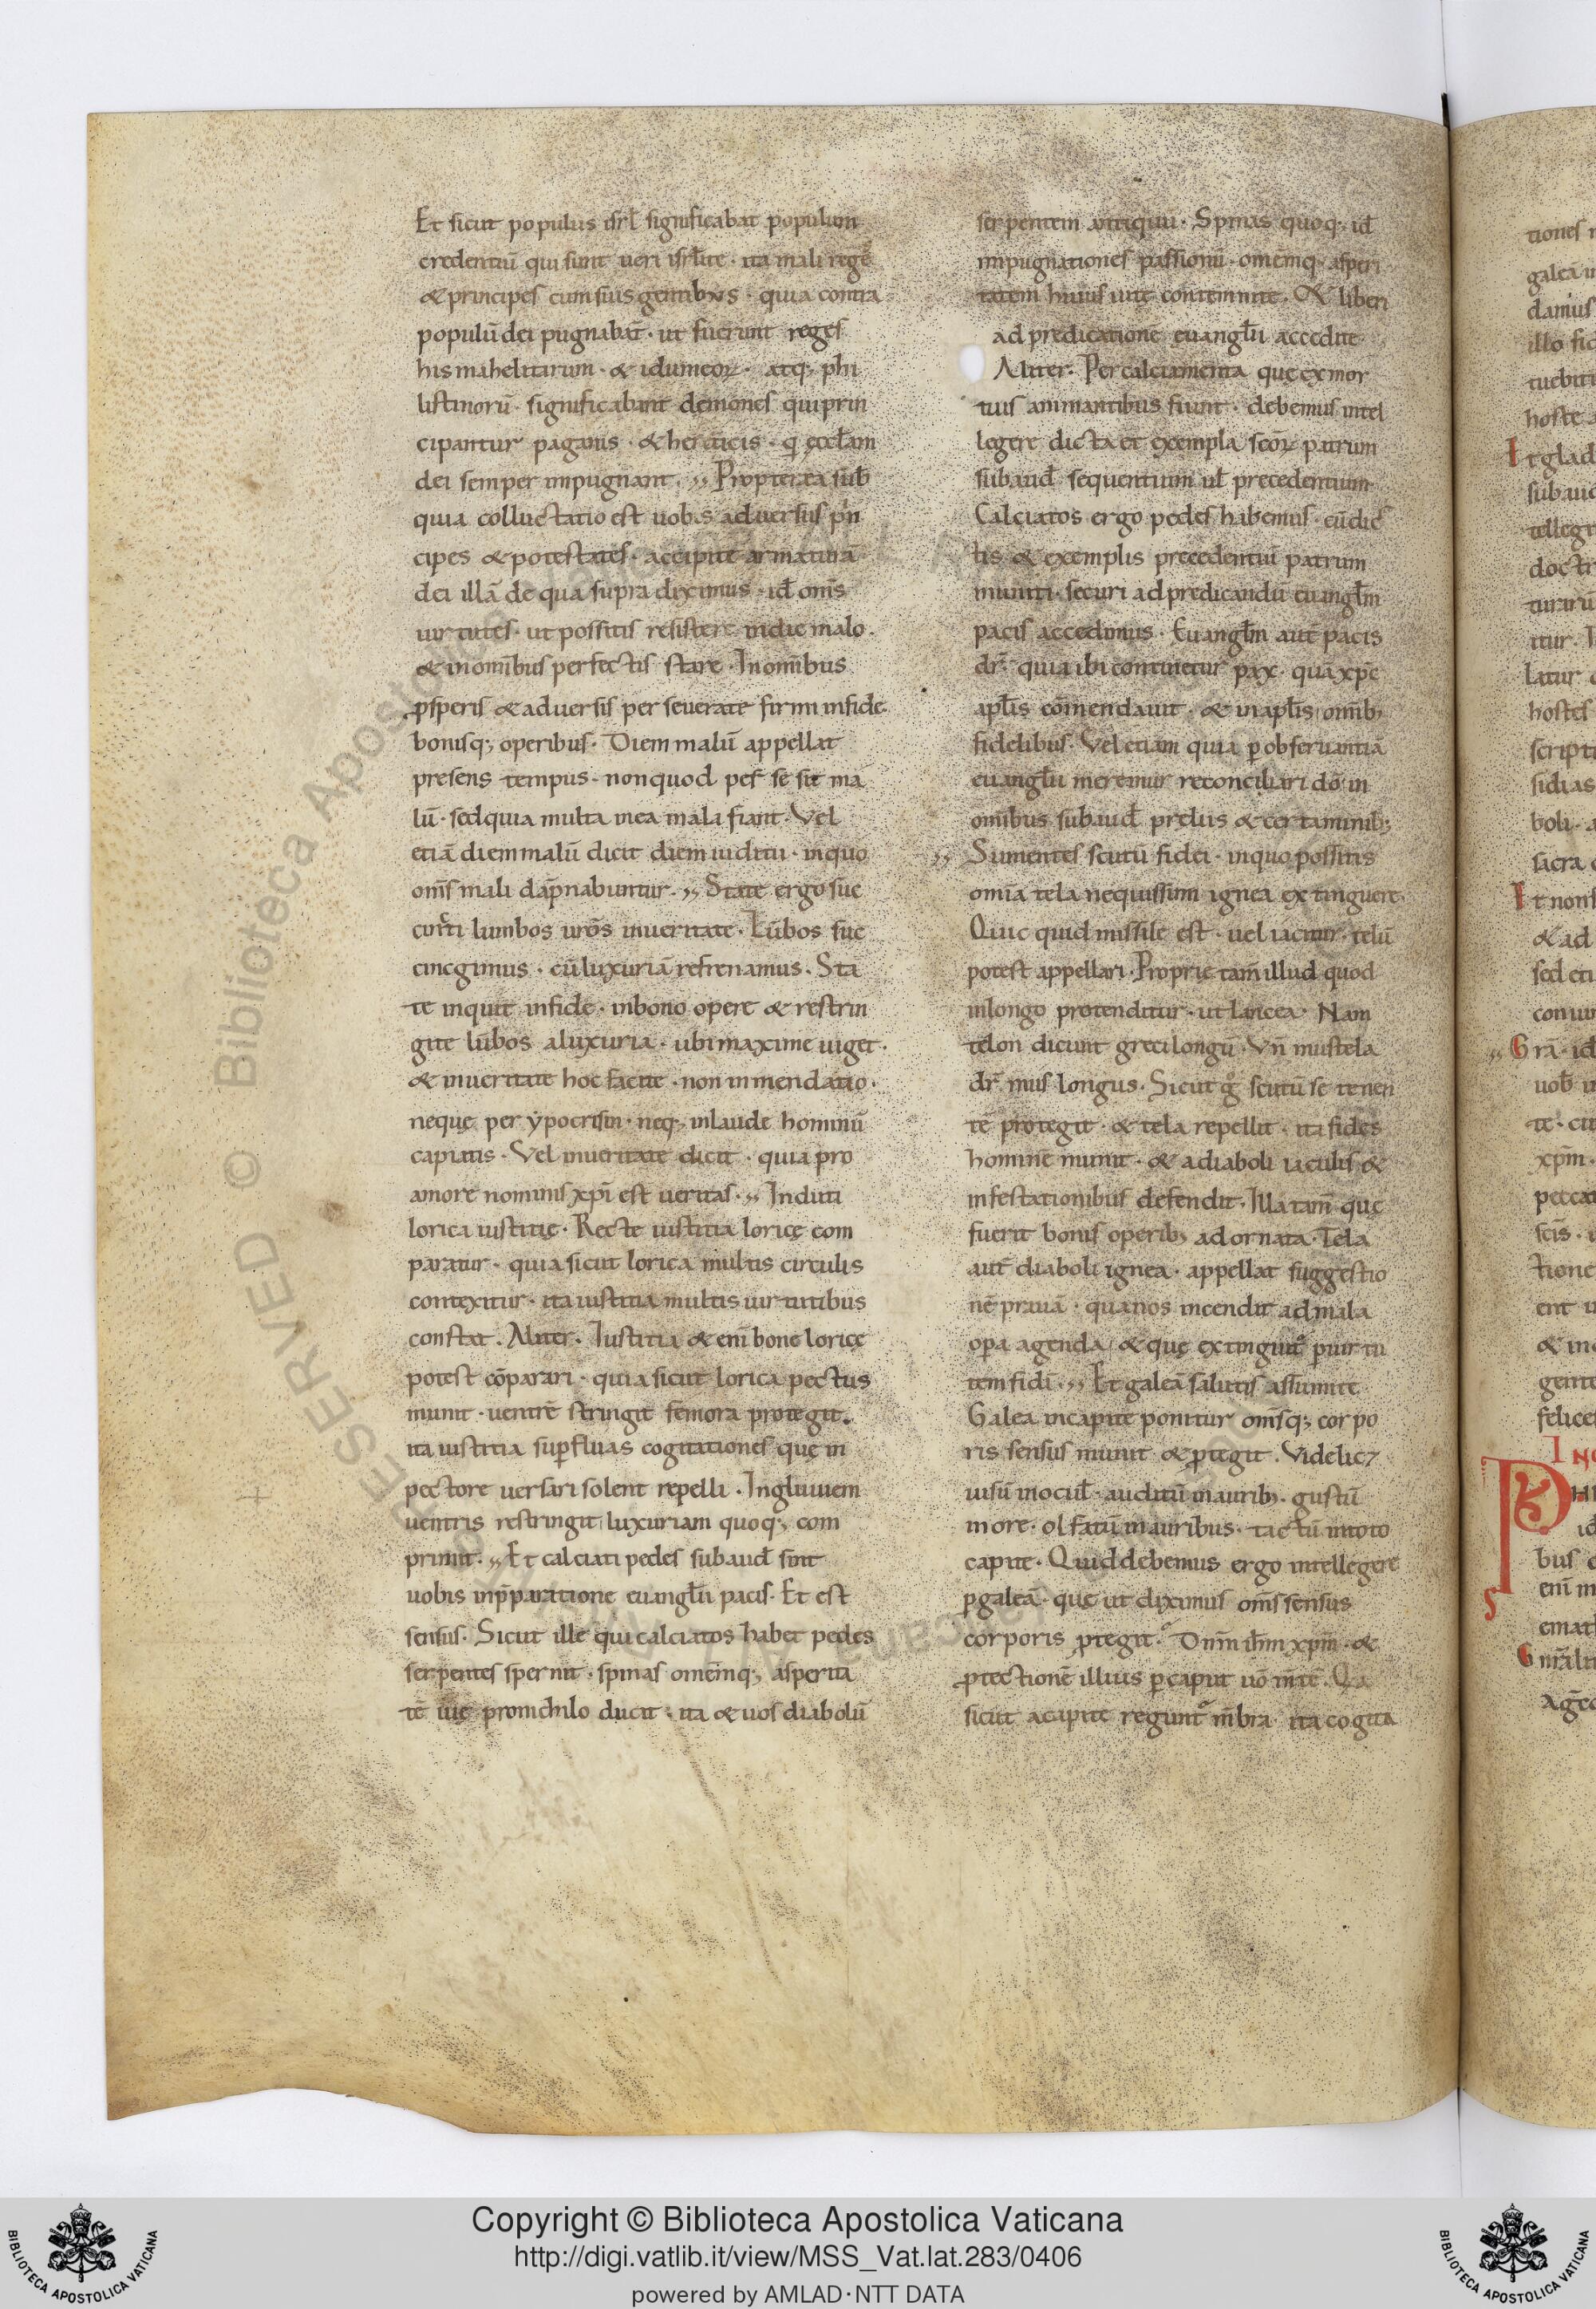 Et sicut populus isrł significabat populum
credentiū qui sunt ueri isrłite · ita mali regeˢ
& principes cum suis gentibus · quia contra
populū dei pugnabāt · ut fuerunt reges
hismahelitarum · & idumeoꝝ · atq; phi
listinorū · significabant demones qui prin
cipantur paganis · & hereticis · q ęcclam
dei semper impugnant · ,, Propterea sub
quia colluctatio est uobis aduersus prin
cipes & potestates · accipite armaturā
dei illā de qua supra diximus · id̄ om̄s
uirtutes · ut possitis resistere in die malo ·
& in omībus perfectis stare · In omībus
ꝓsperis & aduersis perseuerate firmi in fide
bonisq; operibus · Diem malū appellat
presens tempus · non quod per se sit ma
lū · sed quia multa in ea mala fiant · Vel
etiā diem malū dicit diem iudicii · in quo
om̄s mali dāpnabuntur · ,, State ergo suc
cincti lumbos urōs in ueritate · Lūbos suc
cincgimus · cū luxuriā refrenamus · Sta
te inquit in fide · in bono opere & restrin
gite lūbos a luxuria · ubi maxime uiget ·
& in ueritate hoc facite · non in mendatio ·
neque per ypocrisin · neq; in laude hominū
capiatis · Vel in ueritate dicit · quia pro
amore nominis xp̄i est ueritas · ,, Induti
lorica iustitię · Recte iustitia loricę com
paratur · quia sicut lorica multis circulis
contexitur · ita iustitia multis uirtutibus
constat · Aliter · Iustitia & enī bone loricę
potest cōparari · quia sicut lorica pectus
munit · uentrē stringit femora protegit ·
ita iustitia suꝑfluas cogitationes que in
pectore uersari solent repelli · Ingluuiem
uentris restringit luxuriam quoq; com
primit · ,, Et calciati pedes subaud̄ sint
uobis in p̄paratione euangłii pacis · Et est
sensus · Sicut ille qui calciatos habet pedes
serpentes spernit · spinas omēmq; asperita
tē uię pro nichilo ducit · ita & uos diabolū
serpentem antiquū · Spinas quoq; id̄
impugnationes passionū · omēmq; asperi
tatem huius uitę contemnite · & liberi
ad predicationē euangłii accedite
Aliter · Per calciamenta quę ex mor
tuis animantibus fiunt · debemus intel
legere dicta et exempla scōꝝ patrum
subaud̄ sequentium uł precedentium
Calciatos ergo pedes habemus · cū dic
tis & exemplis precedentiū patrum
muniti · securi ad predicandū euangłm
pacis accedimus · Euangłm aut̄ pacis
dr̄ · quia ibi continetur pax · quā xp̄c
apłis cōmendauit · & in apłis omīb;
fidelibus · Vel etiam quia ꝑ obseruantiā
euangłii meremur reconciliari dō in
omībus subaud̄ preliis & certaminib;
,, Sumentes scutū fidei · in quo possitis
omīa tela nequissimi ignea extinguere ·
Quic quid missile est · uel iacitur · telū
potest appellari · Proprie tam̄ illud quod
in longo protenditur · ut lancea · Nam
telon dicunt greci longū · Vn̄ mustela
dr̄ mus longus · Sicut gͦ scutū se tenen
tē protegit · & tela repellit · ita fides
hominē munit · & a diaboli iaculis &
infestationibus defendit · Illa tam̄ quę
fuerit bonis operib; adornata · Tela
aut̄ diaboli ignea · appellat suggestio
nē prauā · qua nos incendit ad mala
oꝑa agenda · & quę extinguit᷑ ꝑ uirtu
tem fidi · ,, Et galeā salutis assumite
Galea in capite ponitur om̄sq; corpo
ris sensus munit & ꝓtegit · Videlic&
uisū in ocul̄ · auditū in aurib; · gustū
in ore · olfatū in auribus · tactū in toto
capite · Quid debemus ergo intellegere
ꝑ galeā · quę ut diximus om̄s sensus
corporis ꝓtegit · Dnm̄ ihm̄ xpm̄ · &
ꝓtectionē illius ꝑ caput
sicut a capite regunt᷑ m̄bra · ita cogita
Copyright © Biblioteca Apostolica Vaticana
http://digi.vatlib.it/view/MSS_Vat.lat.283/0406
powered by AMLAD·NTT DATA
BIBLIOTECA APOSTOLICA VATICANA
BIBLIOTECA APOSTOLICA VATICANA